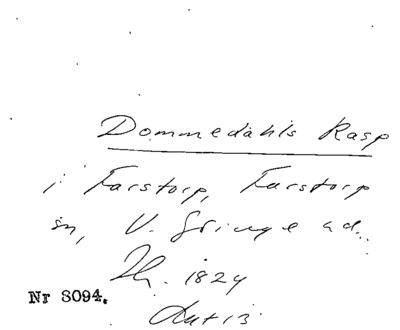 Dommedahls Rasp
i Farstorp, Farstorp
sn, V. Göinge hd.
1824
Nr 8094.